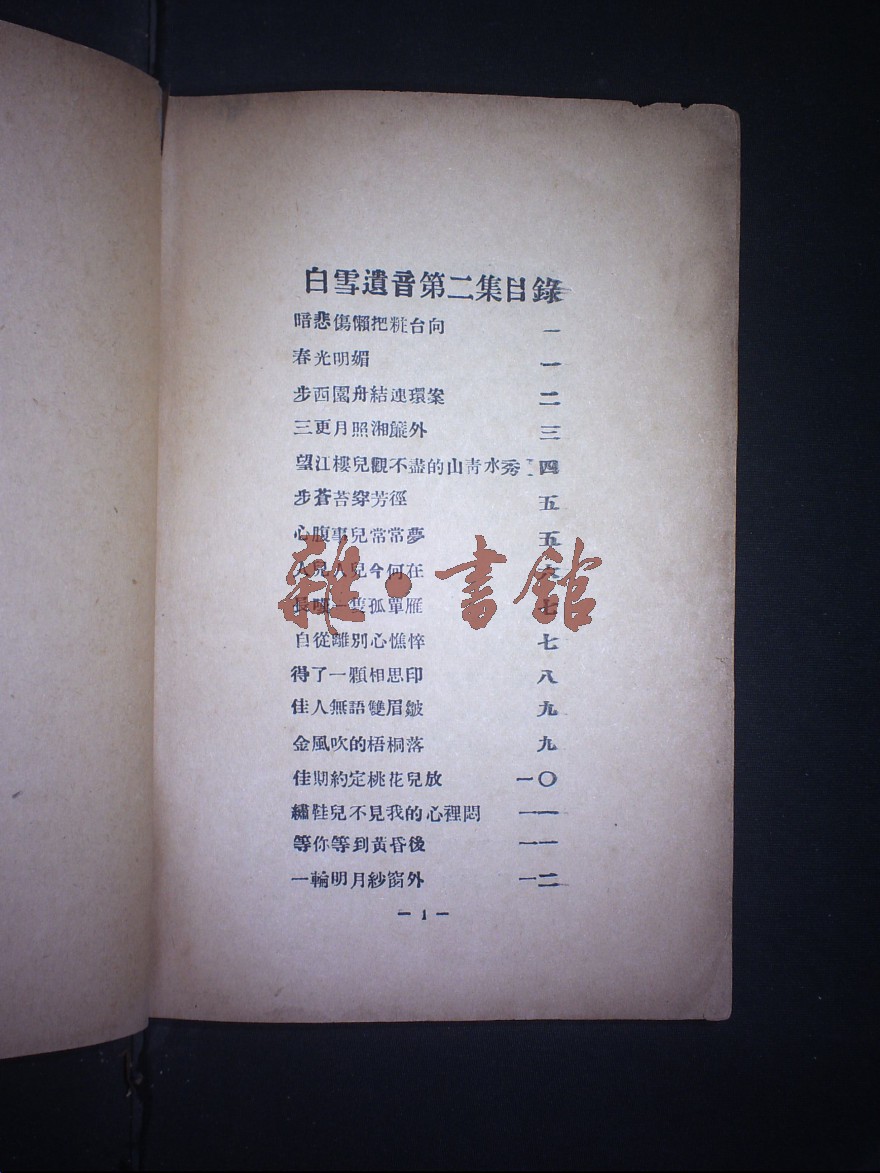 白雪遺音第二集目錄
暗悲傷懶把粧台向 一
春光明媚 一
步西園舟結連環案 二
三更月照湘簾外 三
望江樓兒觀不盡的山青水秀 四
步蒼苔穿芳徑 五
心腹事兒常常夢 五
人兒人兒今何在 六
長嘆一隻孤單雁 七
自從離別心憔悴 七
得了一顆相思印 八
佳人無語雙眉皺 九
金風吹的梧桐落 九
佳期約定桃花兒放 一〇
繡鞋兒不見我的心裡悶 一一
等你等到黃昏後 一一
一輪明月紗窗外 一二
— 1 —
雜·書館